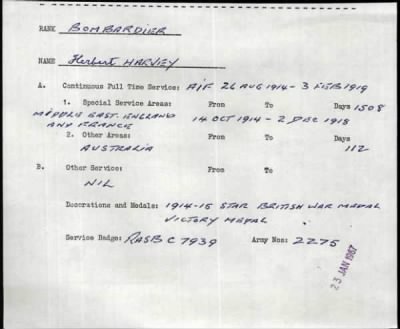 RANK BOMBARDIER
NAME Herbert HARVEY
A. Continuous Full Time Service: AIF 26 AUG 1914 - 3 FEB 1919
1. Special Service Areas: From To Days 1508
MIDDLE EAST. ENGLAND 14 OCT 1914 - 2 DEC 1918
ANY FRANCE
2. Other Areas: From To Days
AUSTRALIA 112
B. Other Service: From To
NIL
Decorations and Medals: 1914-15 STAR BRITISH WAR MEDAL
VICTORY MEDAL
Service Badge: RASB C 7939 Army Nos: 2275
23 JAN 1967